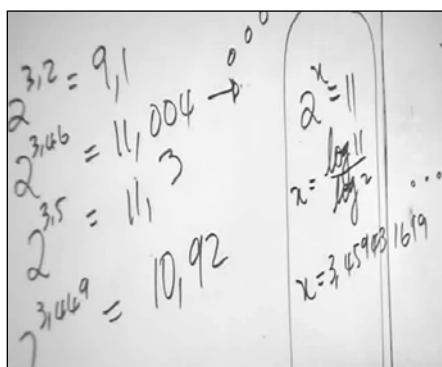 2^3,2 = 9,1
2^3,46 = 11,004 → ...
2^3,5 = 11,3
2^3,449 = 10,92
2^x = 11
x = log 11 / log 2
x = 3,459431619...